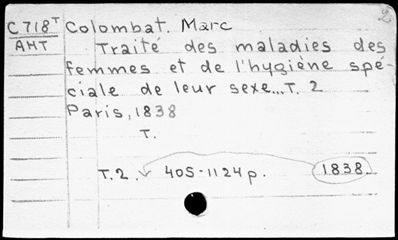 2
C718ᵀ Colombat. Marc
AHT Traité des maladies des
femmes et de l'hygiène spé-
ciale de leur sexe...T. 2
Paris, 1838
T.
T.2. 405-1124 p. 1838